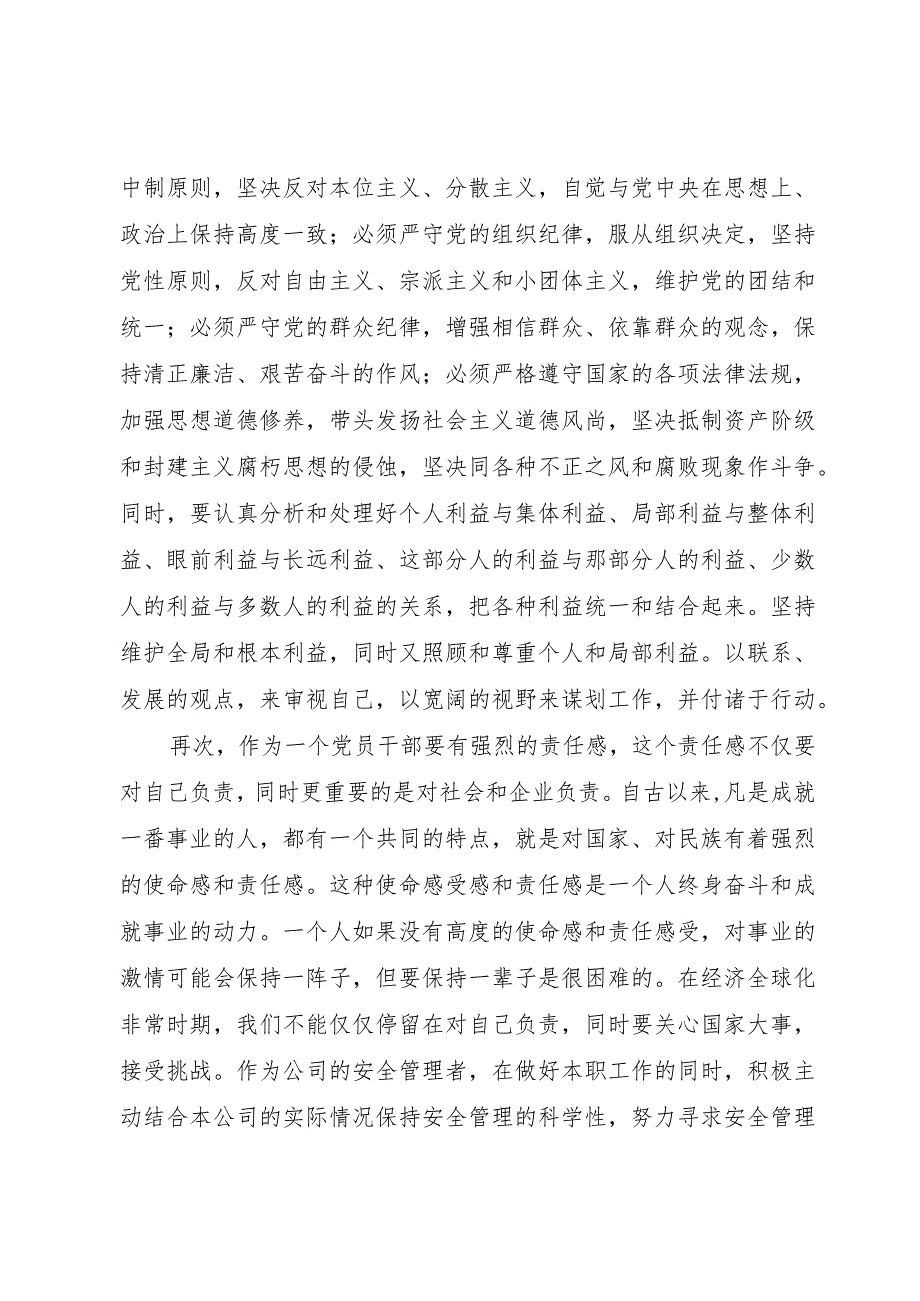 中制原则，坚决反对本位主义、分散主义，自觉与党中央在思想上、
政治上保持高度一致；必须严守党的组织纪律，服从组织决定，坚持
党性原则，反对自由主义、宗派主义和小团体主义，维护党的团结和
统一；必须严守党的群众纪律，增强相信群众、依靠群众的观念，保
持清正廉洁、艰苦奋斗的作风；必须严格遵守国家的各项法律法规，
加强思想道德修养，带头发扬社会主义道德风尚，坚决抵制资产阶级
和封建主义腐朽思想的侵蚀，坚决同各种不正之风和腐败现象作斗争。
同时，要认真分析和处理好个人利益与集体利益、局部利益与整体利
益、眼前利益与长远利益、这部分人的利益与那部分人的利益、少数
人的利益与多数人的利益的关系，把各种利益统一和结合起来。坚持
维护全局和根本利益，同时又照顾和尊重个人和局部利益。以联系、
发展的观点，来审视自己，以宽阔的视野来谋划工作，并付诸于行动。
再次，作为一个党员干部要有强烈的责任感，这个责任感不仅要
对自己负责，同时更重要的是对社会和企业负责。自古以来，凡是成就
一番事业的人，都有一个共同的特点，就是对国家、对民族有着强烈
的使命感和责任感。这种使命感受感和责任感是一个人终身奋斗和成
就事业的动力。一个人如果没有高度的使命感和责任感受，对事业的
激情可能会保持一阵子，但要保持一辈子是很困难的。在经济全球化
非常时期，我们不能仅仅停留在对自己负责，同时要关心国家大事，
接受挑战。作为公司的安全管理者，在做好本职工作的同时，积极主
动结合本公司的实际情况保持安全管理的科学性，努力寻求安全管理